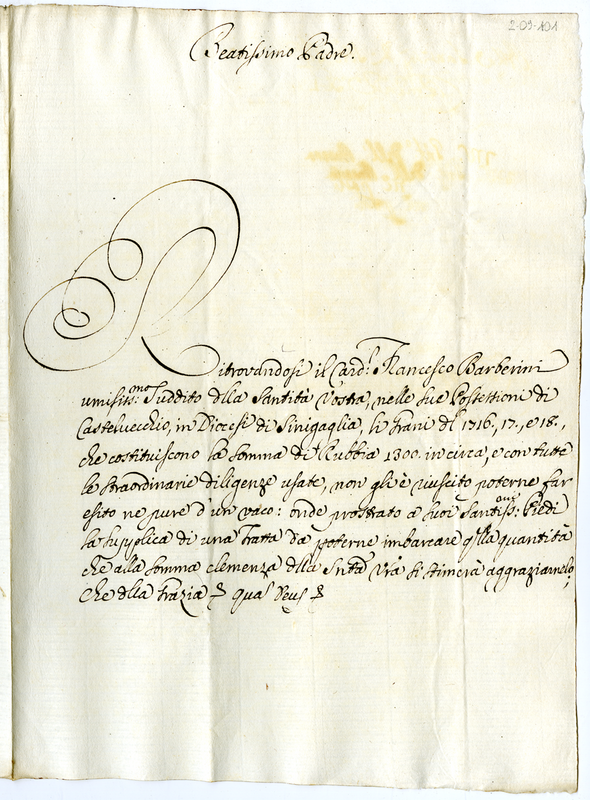 2-09-101
Beatissimo Padre.
Ritrovandosi il Card.l Francesco Barberini
umiliss:mo Suddito dlla Santità Vostra, nelle sue Possessioni di
Castelvecchio, in Diocesi di Sinigaglia, li Grani dl 1716., 17., e 18.,
che costituiscono la somma di Rubbia 1300. in circa, e con tutte
le straordinarie diligenze usate, non gli è riuscito poterne far
esito ne pure d'un vaco: onde prostrato a suoi Santiss: Piedi
la supplica di una Tratta da poterne imbarcare qlla quantità
che alla somma clemenza dlla Sntà Vra si stimerà aggraziarnelo,
Che dlla Grazia & quas Deus &